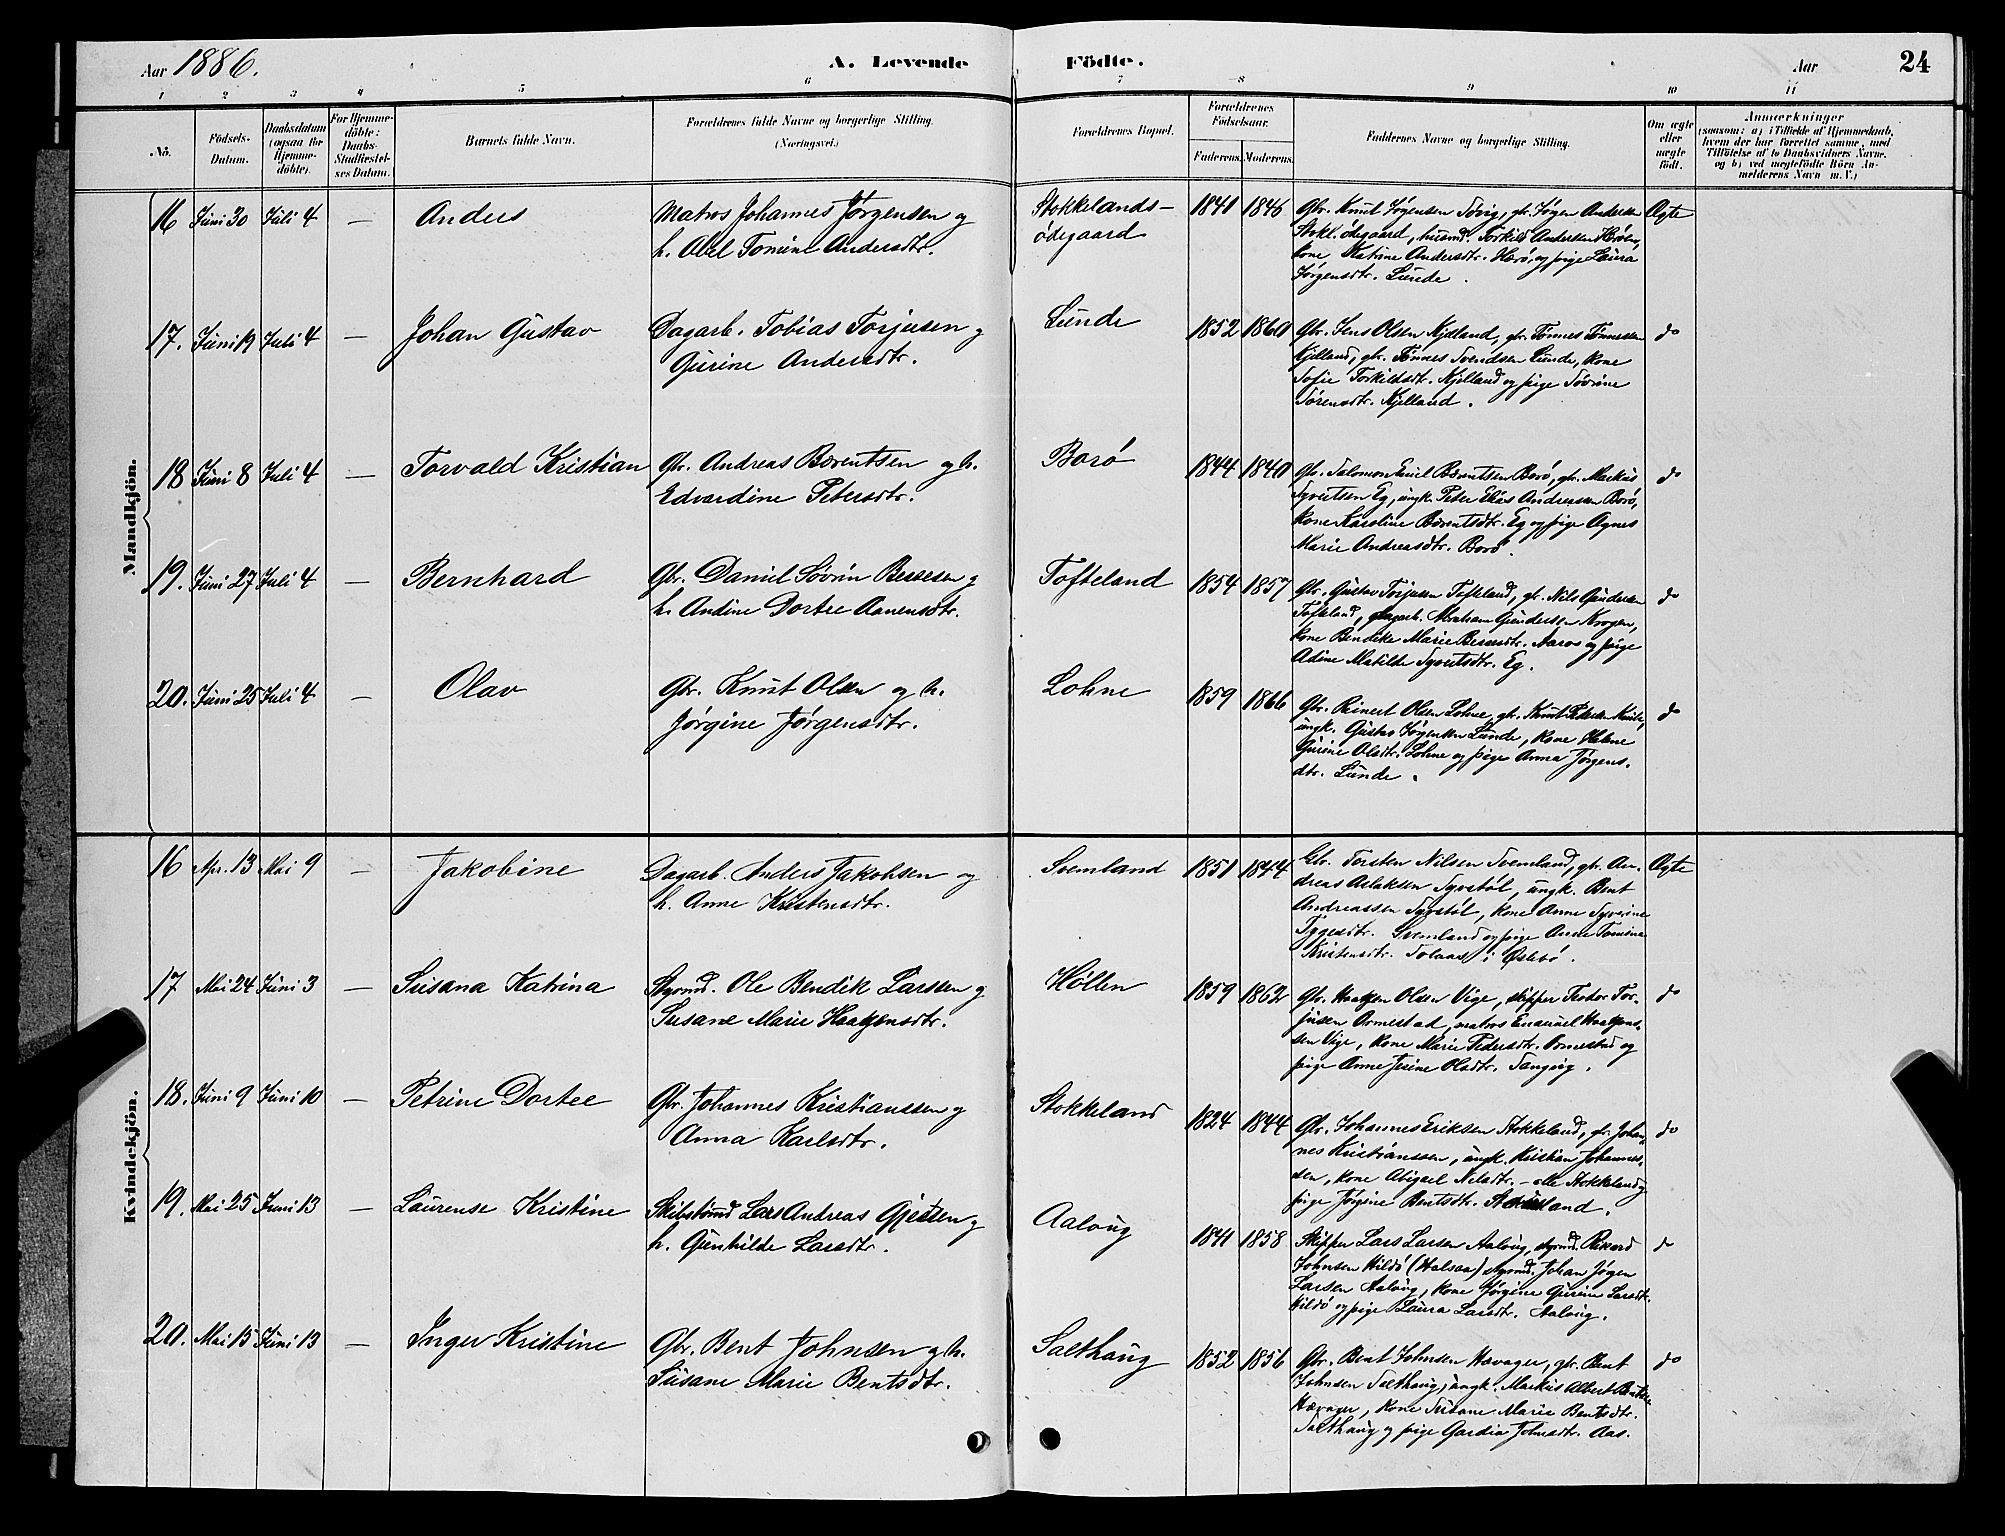 Aar 1886. A. Levende Födte. Aar 24
1 2 3 4 5 6 7 8 9 10 11
No. Födsels-Datum. Daabsdatum (ogsaa for Hjemme-döbte). For Hjemme-döbte: Daabs-Stadfæstelses Datum. Barnets fulde Navn. Forældrenes fulde Navne og borgerlige Stilling. (Næringsvei.) Forældrenes Bopæl. Forældrenes Födselsaar. Faderens. Moderens. Faddernes Navne og borgerlige Stilling. Om ægte eller uægte födt. Anmærkninger
(saasom: a) i Tilfælde af Hjemmedaab,
hvem der har forrettet samme, med
Tilföielse af to Daabsvidners Navne.
og b) ved uægtefödte Börn An-
melderens Navn m. V.)
Mandkjön.
16 Juni 30 Juli 4 — Anders
Matros Johannes Jørgensen og
h. Abel Tomine Andersdtr.
Stokkelands-
ødegaard
1841 1846
Gbr. Knut Jørgensen Søvig, gbr. Jørgen Andersen
Stokl. ødegaard, husmd. Torkild Andersen Herøen,
kone Katrine Andersdtr. Herø, og pige Laura
Jørgensdtr. Lunde.
Ægte
17. Juni 19 Juli 4 — Johan Gustav
Dagarb. Tobias Torjusen og
Gurine Andersdtr.
Lunde
1852 1860
Gbr. Jens Olsen Kjelland, gbr. Tønnes Tønnessen
Kjelland, gbr. Tønnes Svendsen Lunde, kone
Sofie Torkildsdtr. Kjelland og pige Søvrine
Sørensdtr. Kjelland.
do
18 Juni 8 Juli 4 — Torvald Kristian
Gbr. Andreas Berentsen og h.
Edvardine Petersdtr.
Borø
1844 1840
Gbr. Salomon Emil Berentsen Borø, gbr. Markus
Syvertsen Eg, ungk. Peter Elias Andreassen Borø,
kone Karoline Berentsdtr. Eg og pige Agnes
Marie Andreasdtr. Borø.
do
19. Juni 27 Juli 4 — Bernhard
Gbr. Daniel Søvrin Bessesen og
h. Andine Dortee Aanensdtr.
Tofteland
1854 1857
Gbr. Gustav Torjusen Tofteland, gbr. Nils Gundersen
Tofteland, dagarb. Abraham Gundersen Krogen,
kone Bendike Marie Bessesdtr. Aaros og pige
Adine Matilde Syvertsdtr. Eg.
do
20. Juni 25 Juli 4 — Olav
Gbr. Knut Olsen og h.
Jørgine Jørgensdtr.
Lohne
1859 1866
Gbr. Reinert Olsen Lohne, gbr. Knut Pedersen
ungk. Gustav Jørgensen Lunde, kone Helene
Gurine Olsdtr. Lohne og pige Anna Jørgens-
dtr. Lunde.
do
Kvindekjön.
16 Apr. 13 Mai 9 — Jakobine
Dagarb. Anders Jakobsen og
h. Anne Kristensdtr.
Svemland
1851 1844
Gbr. Torsten Nilsen Svemland, gbr. An-
dreas Aslaksen Syrstøl, ungk. Bent
Andreassen Syrstøl, kone Anne Syverine
Tygesdtr. Svemland og pige Anne Tomine
Kristensdtr. i Øslebø.
Ægte
17 Mai 24 Juni 3 — Susana Katrina
Styrmd. Ole Bendik Larssen og
Susane Marie Haagensdtr.
Høllen
1859 1862
Gbr. Haagen Olsen Vige, skipper Tor-
jusen Ormestad, matros Emanuel Haagens-
sen Vige, kone Marie Pedersdtr. Ormestad og
pige Anne Olsdtr. Tangvig.
do
18. Juni 9 Juni 10 — Petrine Dortee
Gbr. Johannes Kristianssen og
Anna Karlsdtr.
Stokkeland
1824 1844
Gbr. Johannes Eriksen Stokkeland, gbr. Johan-
nes Kristianssen, ungk. Kristian Johannes-
sen, kone Abigael Nelsdtr. – alle Stokkeland og
pige Jørgine Bentsdtr. Stokkeland.
do
19. Mai 25 Juni 13 — Laurense Kristine
Skibstømd Lars Andreas Gjertsen og
h. Gunhilde Larsdtr.
Aaloug
1841 1858
Skipper Lars Larsen Aaloug, styrmd. Rikard
Johnsen Hildø (Halsaa) styrmd. Johan Jørgen
Larsen Aaloug, kone Jørgine Gurine Larsdtr.
Hildø og pige Laura Larsdtr. Aaloug.
do
20. Mai 15 Juni 13 — Inger Kristine
Gbr. Bent Johnsen og h.
Susane Marie Bentsdtr.
Salthaug
1852 1856
Gbr. Bent Johnsen Hævager, gbr. Bent
Johnsen Salthaug, ungk. Markus Albert Bentsen
Hævager, kone Susane Marie Bentsdtr.
Salthaug og pige Gardia Johnsdtr. Aas.
do